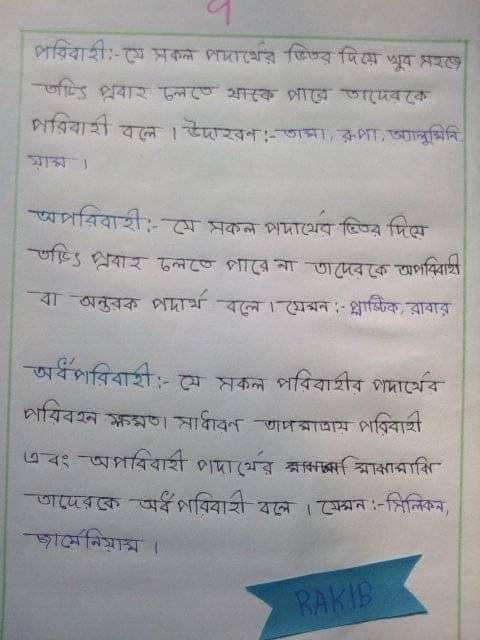 ৭
পরিবাহী:- যে সকল পদার্থের ভিতর দিয়ে খুব সহজে
তড়িৎ প্রবাহ চলতে থাকে পারে তাদেরকে
পরিবাহী বলে । উদাহরন:- তামা, রূপা, অ্যালুমিনি
য়াম ।
অপরিবাহী:- যে সকল পদার্থের ভিতর দিয়ে
তড়িৎ প্রবাহ চলতে পারে না তাদেরকে অপরিবাহী
বা অন্তরক পদার্থ বলে । যেমন:- প্লাস্টিক, রাবার
অর্ধপরিবাহী:- যে সকল পরিবাহীর পদার্থের
পরিবহন ক্ষমতা সাধারন তাপমাত্রায় পরিবাহী
এবং অপরিবাহী পদার্থের মাঝামাঝি
তাদেরকে অর্ধপরিবাহী বলে । যেমন:- সিলিকন,
জার্মেনিয়াম ।
RAKIB